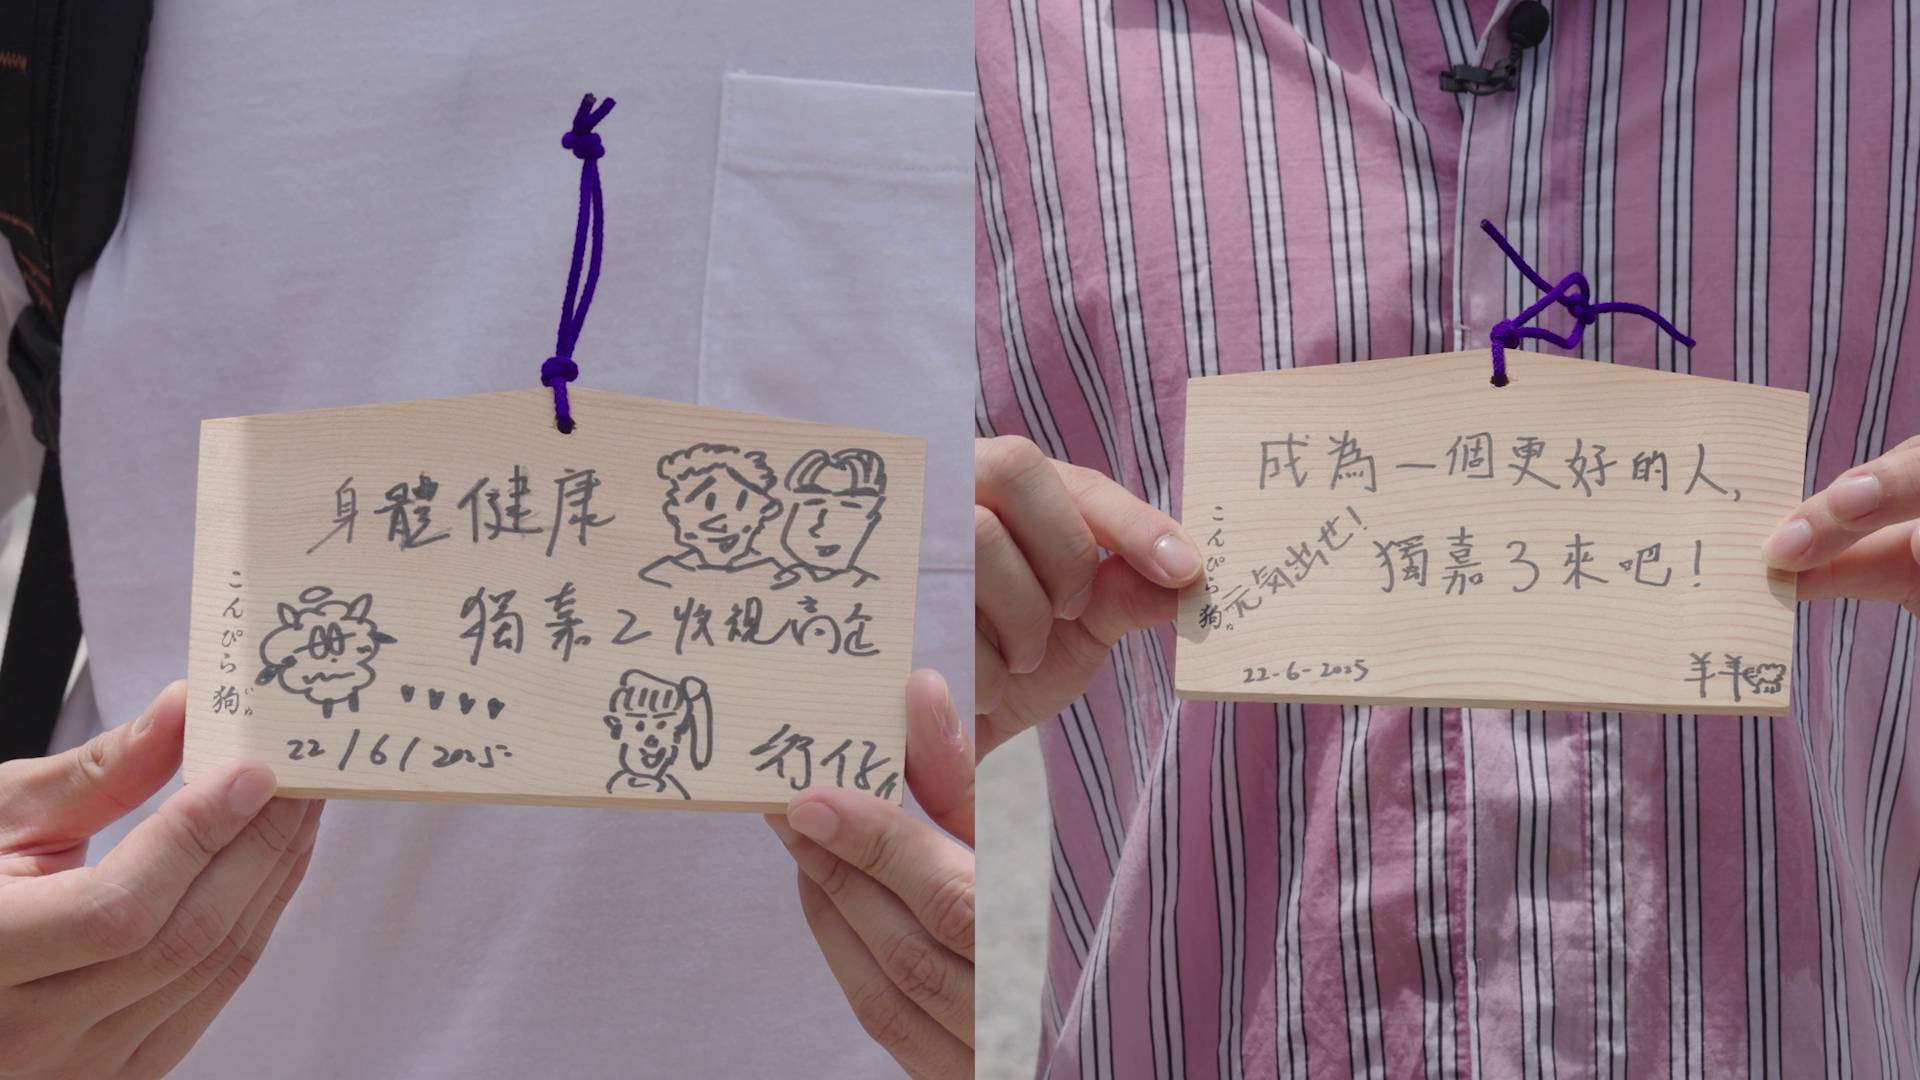 身體健康
獨嘉2收視高企
こんぴら狗
いぬ
22/6/2025
行仔
成為一個更好的人,
獨嘉3來吧!
元気出せ!
こんぴら狗
いぬ
22-6-2025
羊羊